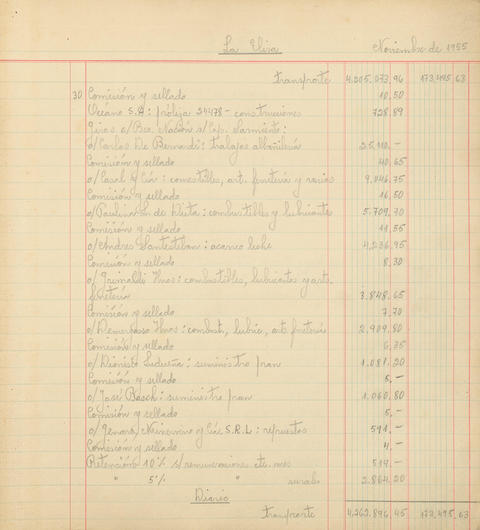 La Elisa Noviembre de 1955
transporte 4.205.073,96 173.495,63
30 Comisión y sellado 10.50
Océano S.A: póliza 24478 - construcciones 728.89
Giros o/ Bco. Nación s/Cap. Sarmiento:
o/Carlos De Bernardi: trabajos albañilería 25.110.-
Comisión y sellado 40.65
o/Casal y Cía: comestibles, art. ferretería y varios 9.046.75
Comisión y sellado 16.50
o/Paulina de : combustibles y lubricantes 5.709.70
Comisión y sellado 11.55
o/Andres Santesteban: acarreo leche 4.236.95
Comisión y sellado 8.30
o/Grimaldi Hnos: combustibles, lubricantes y art.
ferretería 3.848.65
Comisión y sellado 7.70
o/ Hnos: combust, lubric, art. ferretería 2.909.80
Comisión y sellado 6.75
o/Dionisio : suministro pan 1.081.20
Comisión y sellado 5.-
o/José Bosch: suministro pan 1.060.80
Comisión y sellado 5.-
o/Genaro, y Cía S.R.L: repuestos 591.-
Comisión y sellado 4.-
Retención 10% s/remuneraciones cte. mes 514.-
" 5% " " 2.864.20
Diario
transporte 4.262.896,45 173.495,63